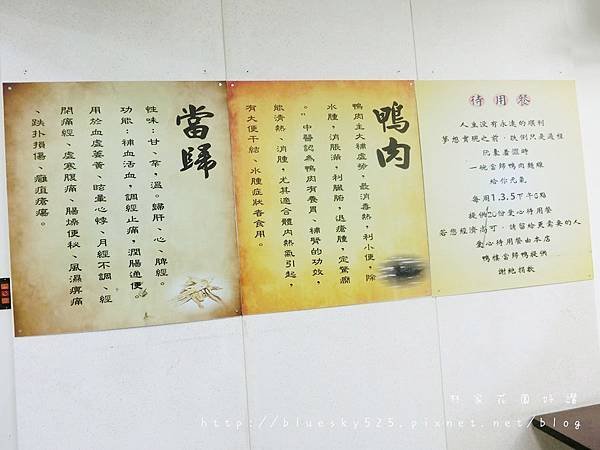 當歸
性味:甘、辛,溫。歸肝、心、脾經。
功能:補血活血,調經止痛,潤腸通便。
用於血虛萎黃、眩暈心悸、月經不調、經
閉痛經、虛寒腹痛、腸燥便秘、風濕痺痛
、跌扑損傷、癰疽瘡瘍。
鴨肉
鴨肉主大補虛勞,最消毒熱,利小便,除
水腫,消脹滿,利臟腑,退瘡腫,定驚癇
。"中醫認為鴨肉有養胃、補腎的功效,
能清熱、消腫,尤其適合體內熱氣引起,
有大便干結、水腫症狀者食用。
待用餐
人生沒有永遠的順利
夢想實現之前,跌倒只是過程
阮囊羞澀時
一碗當歸鴨肉麵線
給你元氣
每周1.3.5下午5點
提供20份愛心待用餐
若您經濟尚可,請留給更需要的人
愛心待用餐由本店
鴨樓當歸鴨提供
謝絕捐款
林家花園好讚
http://bluesky525.pixnet.net/blog